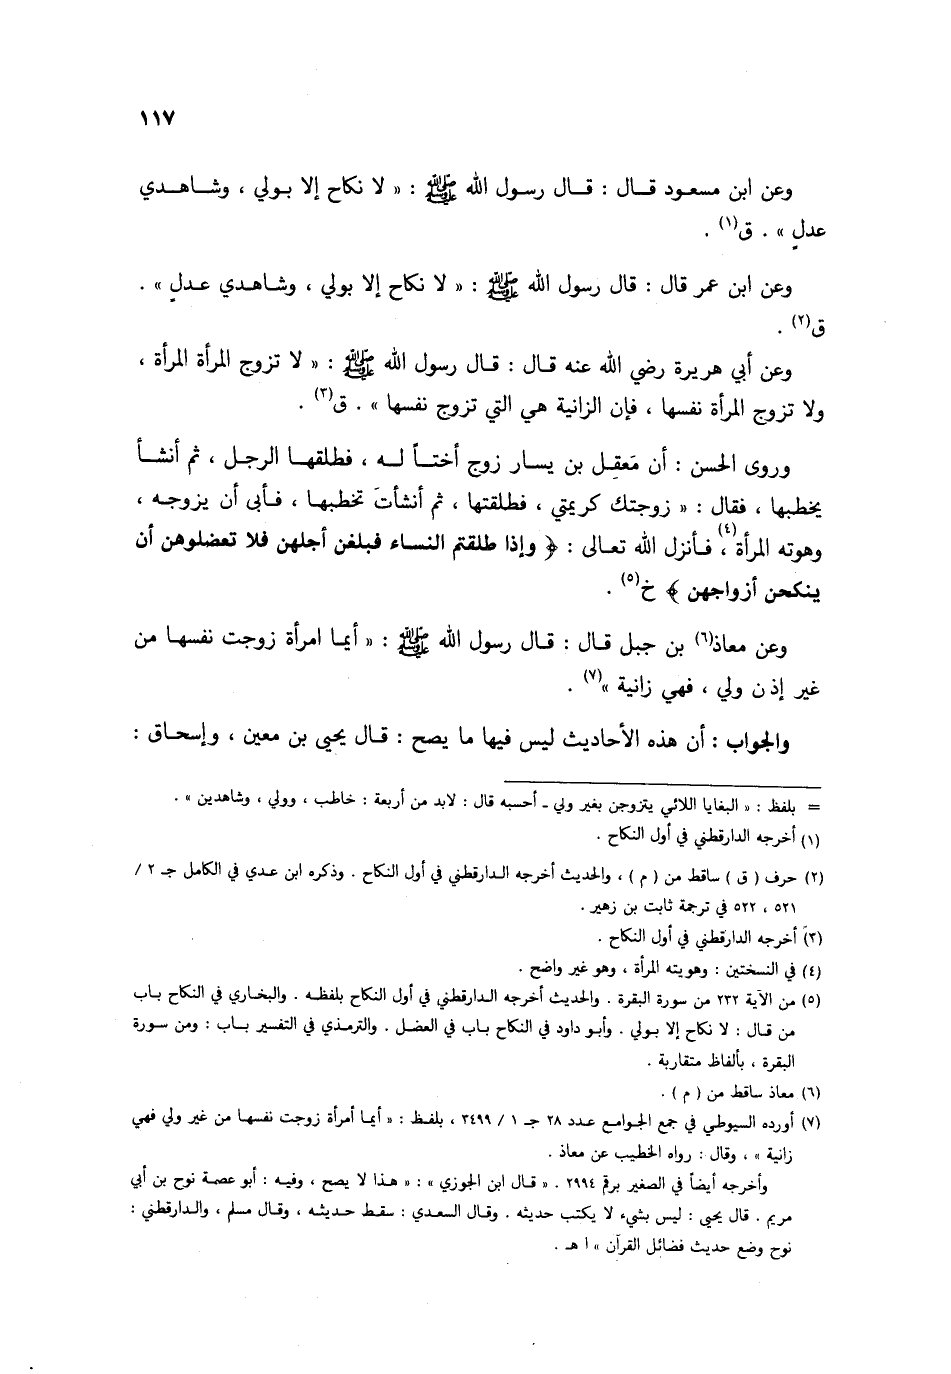 ١١٧
وعن ابن مسعود قال : قال رسول الله ﷺ : « لا نكاح إلا بولي ، وشاهدي
عدلٍ » . ق(١) .
وعن ابن عمر قال : قال رسول الله ﷺ : « لا نكاح إلا بولي ، وشاهدي عدلٍ » .
ق(٢) .
وعن أبي هريرة رضي الله عنه قال : قال رسول الله ﷺ : « لا تزوج المرأة المرأة ،
ولا تزوج المرأة نفسها ، فإن الزانية هي التي تزوج نفسها » . ق(٣) .
وروى الحسن : أن مَعقِل بن يسار زوج أختاً له ، فطلقها الرجل ، ثم أنشأ
يخطبها ، فقال : « زوجتك كريمتي ، فطلقتها ، ثم أنشأتَ تخطبها ، فأبى أن يزوجه ،
وهوته المرأة(٤) ، فأنزل الله تعالى : ﴿ وإذا طلقتم النساء فبلغن أجلهن فلا تعضلوهن أن
ينكحن أزواجهن ﴾ خ(٥) .
وعن معاذ(٦) بن جبل قال : قال رسول الله ﷺ : « أيما امرأة زوجت نفسها من
غير إذن ولي ، فهي زانية »(٧) .
والجواب : أن هذه الأحاديث ليس فيها ما يصح : قال يحيى بن معين ، وإسحاق :
= بلفظ : « البغايا اللائي يتزوجن بغير ولي ـ أحسبه قال : لابد من أربعة : خاطب ، وولي ، وشاهدين » .
(١) أخرجه الدارقطني في أول النكاح .
(٢) حرف ( ق ) ساقط من ( م ) ، والحديث أخرجه الدارقطني في أول النكاح . وذكره ابن عدي في الكامل جـ ٢ /
٥٢١ ، ٥٢٢ في ترجمة ثابت بن زهير .
(٣) أخرجه الدارقطني في أول النكاح .
(٤) في النسختين : وهويته المرأة ، وهو غير واضح .
(٥) من الآية ٢٣٢ من سورة البقرة . والحديث أخرجه الدارقطني في أول النكاح بلفظه . والبخاري في النكاح باب
من قال : لا نكاح إلا بولي . وأبو داود في النكاح باب في العضل . والترمذي في التفسير باب : ومن سورة
البقرة ، بألفاظ متقاربة .
(٦) معاذ ساقط من ( م ) .
(٧) أورده السيوطي في جمع الجوامع عدد ٢٨ جـ ١ / ٣٤٩٩ ، بلفظ : « أيما أمرأة زوجت نفسها من غير ولي فهي
زانية » ، وقال : رواه الخطيب عن معاذ .
وأخرجه أيضاً في الصغير برقم ٢٩٩٤ . « قال ابن الجوزي » : « هذا لا يصح ، وفيه : أبو عصمة نوح بن أبي
مريم . قال يحيى : ليس بشيء لا يكتب حديثه . وقال السعدي : سقط حديثه ، وقال مسلم ، والدارقطني :
نوح وضع حديث فضائل القرآن » ا هـ .